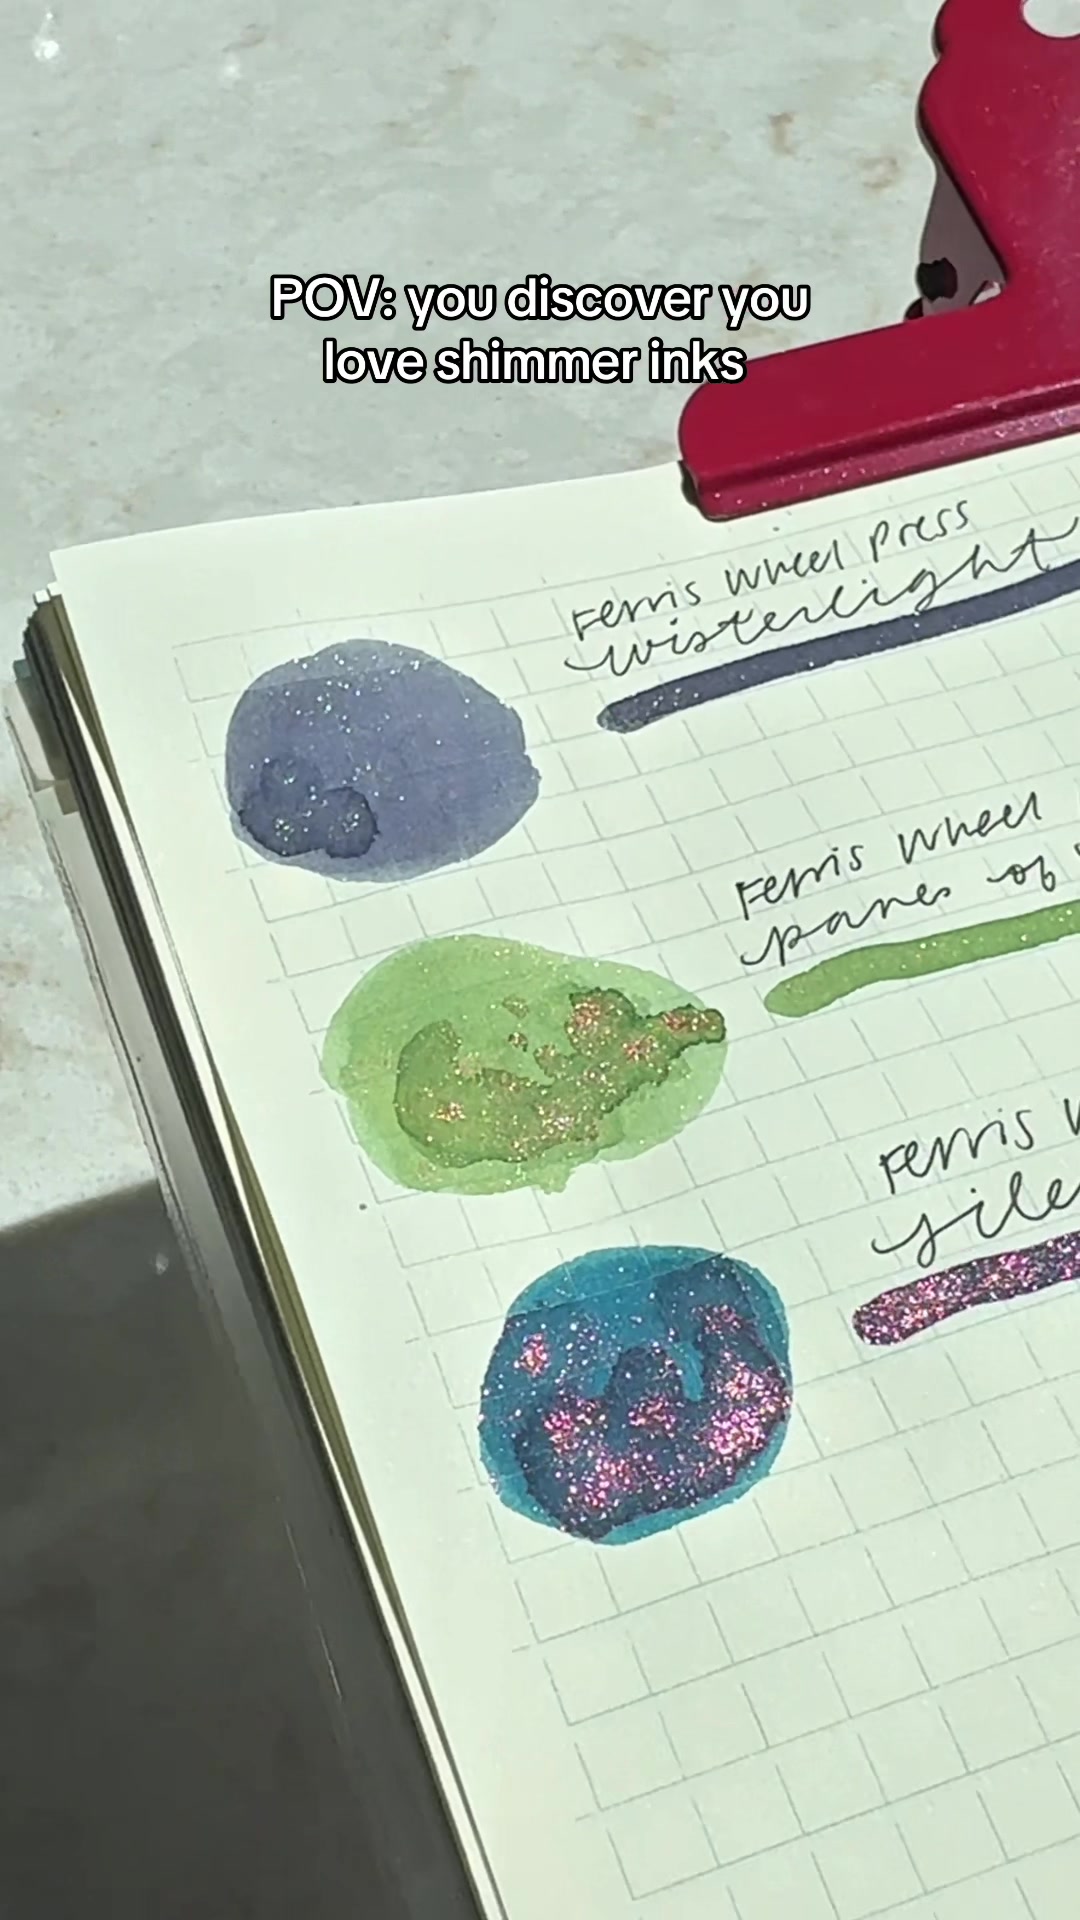 POV: you discover you
love shimmer inks
Ferris Wheel Press
wisterlight
Ferris Wheel
panes of
Ferris
sile